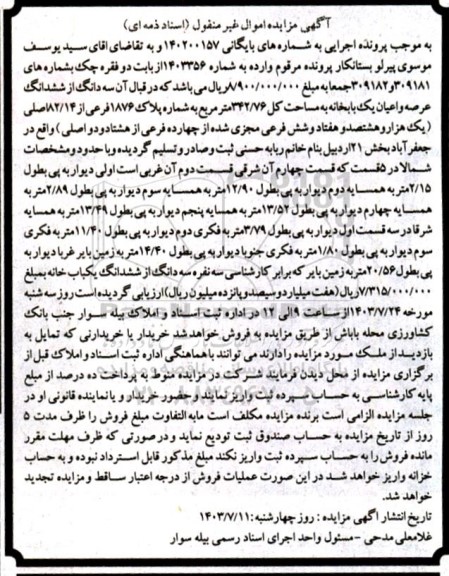 آگهی مزایده اموال غیر منقول (اسناد ذمه ای)
به موجب پرونده اجرایی به شماره های بایگانی ۱۴۰۲۰۰۱۵۷ و به تقاضای اقای سید یوسف
موسوی پیرلو بستانکار پرونده مرقوم وارده به شماره ۱۴۰۳۳۵۶ از بابت دو فقره چک بشماره های
۳۰۹۱۸۱ و ۳۰۹۱۸۲ جمعا به مبلغ ۸/۹۰۰/۰۰۰/۰۰۰ ریال می باشد که در قبال آن سه دانگ از ششدانگ
عرصه و اعیان یک باب خانه به مساحت کل ۳۴۲/۷۶ متر مربع به شماره پلاک ۱۸۷۶ فرعی از ۸۲/۱۴ اصلی
(یک هزار و هشتصد و هفتاد و شش فرعی مجزی شده از چهارده فرعی از هشتاد و دو اصلی) واقع در
جعفرآباد بخش ۲۱ اردبیل بنام خانم ربابه حسنی ثبت و صادر و تسلیم گردیده و با حدود و مشخصات
شمالا در ۵ قسمت که قسمت چهارم آن شرقی قسمت دوم آن غربی است اولی دیوار به پی بطول
۲/۱۵ متر به همسایه دوم دیوار به پی بطول ۱۲/۹۰ متر به همسایه سوم دیوار به پی بطول ۲/۸۹ متر به
همسایه چهارم دیوار به پی بطول ۱۳/۵۲ متر به همسایه پنجم دیوار به پی بطول ۱۳/۴۹ متر به همسایه
شرقا در سه قسمت اول دیوار به پی بطول ۳/۷۹ متر به فکری دوم دیوار به پی بطول ۱۱/۴۰ متر به فکری
سوم دیوار به پی بطول ۱/۸۰ متر به فکری جنوبا دیوار به پی بطول ۱۴/۴۰ متر به زمین بایر غربا دیوار به
پی بطول ۲۰/۵۶ متر به زمین بایر که برابر کارشناسی سه نفره سه دانگ از ششدانگ یکباب خانه بمبلغ
۷/۳۱۵/۰۰۰/۰۰۰ ریال (هفت میلیارد و سیصد و پانزده میلیون ریال) ارزیابی گردیده است روز سه شنبه
مورخه ۱۴۰۳/۷/۲۴ از ساعت ۹ الی ۱۲ در اداره ثبت اسناد و املاک بیله سوار جنب بانک
کشاورزی محله باباش از طریق مزایده به فروش خواهد شد خریدار یا خریدارنی که تمایل به
بازدید از ملک مورد مزایده را دارند می توانند با هماهنگی اداره ثبت اسناد و املاک قبل از
برگزاری مزایده از محل دیدن فرمایند شرکت در مزایده منوط به پرداخت ده درصد از مبلغ
پایه کارشناسی به حساب سپرده ثبت واریز نمایند و حضور خریدار و یا نماینده قانونی او در
جلسه مزایده الزامی است برنده مزایده مکلف است مابه التفاوت مبلغ فروش را ظرف مدت ۵
روز از تاریخ مزایده به حساب صندوق ثبت تودیع نماید و در صورتی که ظرف مهلت مقرر
مانده فروش را به حساب سپرده ثبت واریز نکند مبلغ مذکور قابل استرداد نبوده و به حساب
خزانه واریز خواهد شد در این صورت عملیات فروش از درجه اعتبار ساقط و مزایده تجدید
خواهد شد.
تاریخ انتشار آگهی مزایده : روز چهارشنبه: ۱۴۰۳/۷/۱۱
غلامعلی مدحی - مسئول واحد اجرای اسناد رسمی بیله سوار